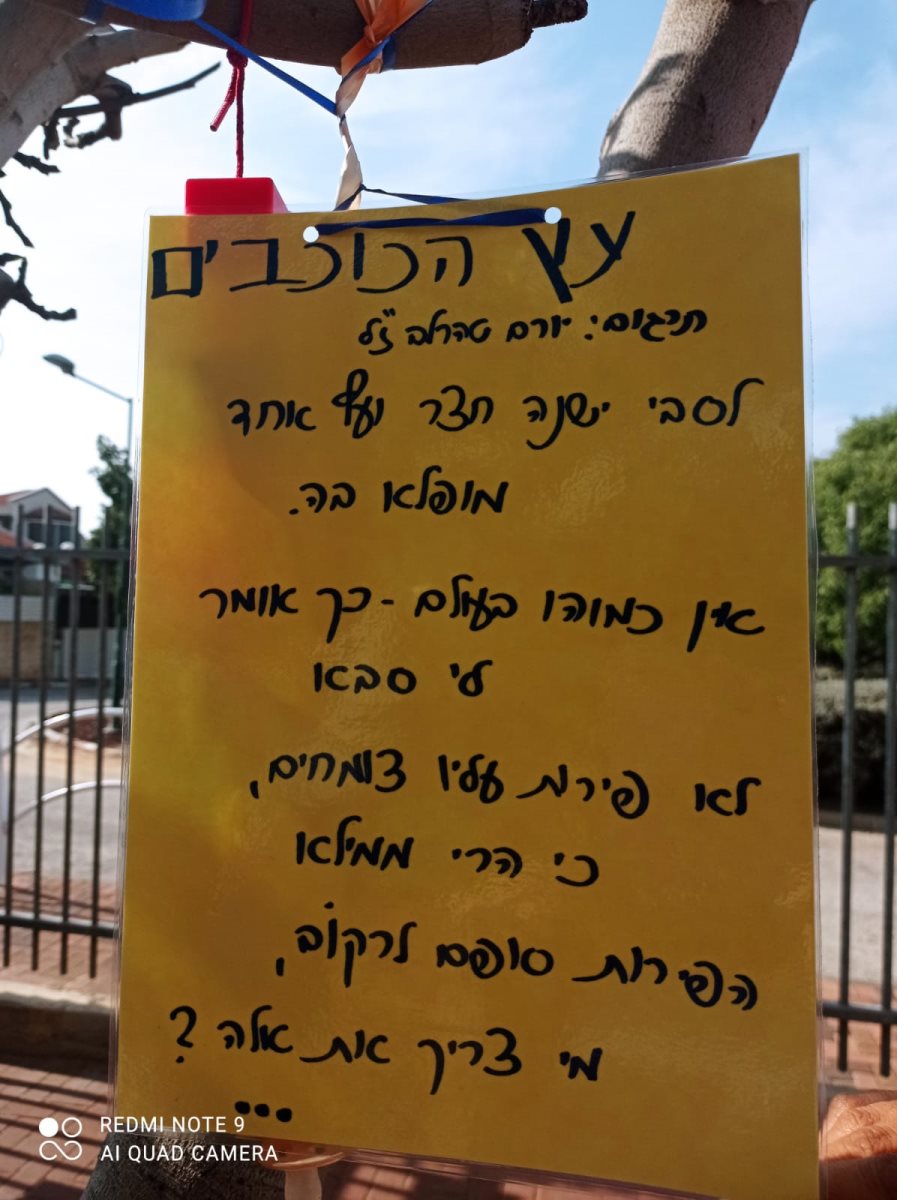 עץ הכוכבים
תרגום: יורם טהרלב ז"ל
לסבי ישנה חצר ועץ אחד
מופלא בה.
אין כמוהו בעולם - כך אומר
לי סבא
לא פירות עליו צומחים,
כי הרי ממילא
הפירות סופם לרקוב,
מי צריך את אלה?
...
REDMI NOTE 9
AI QUAD CAMERA